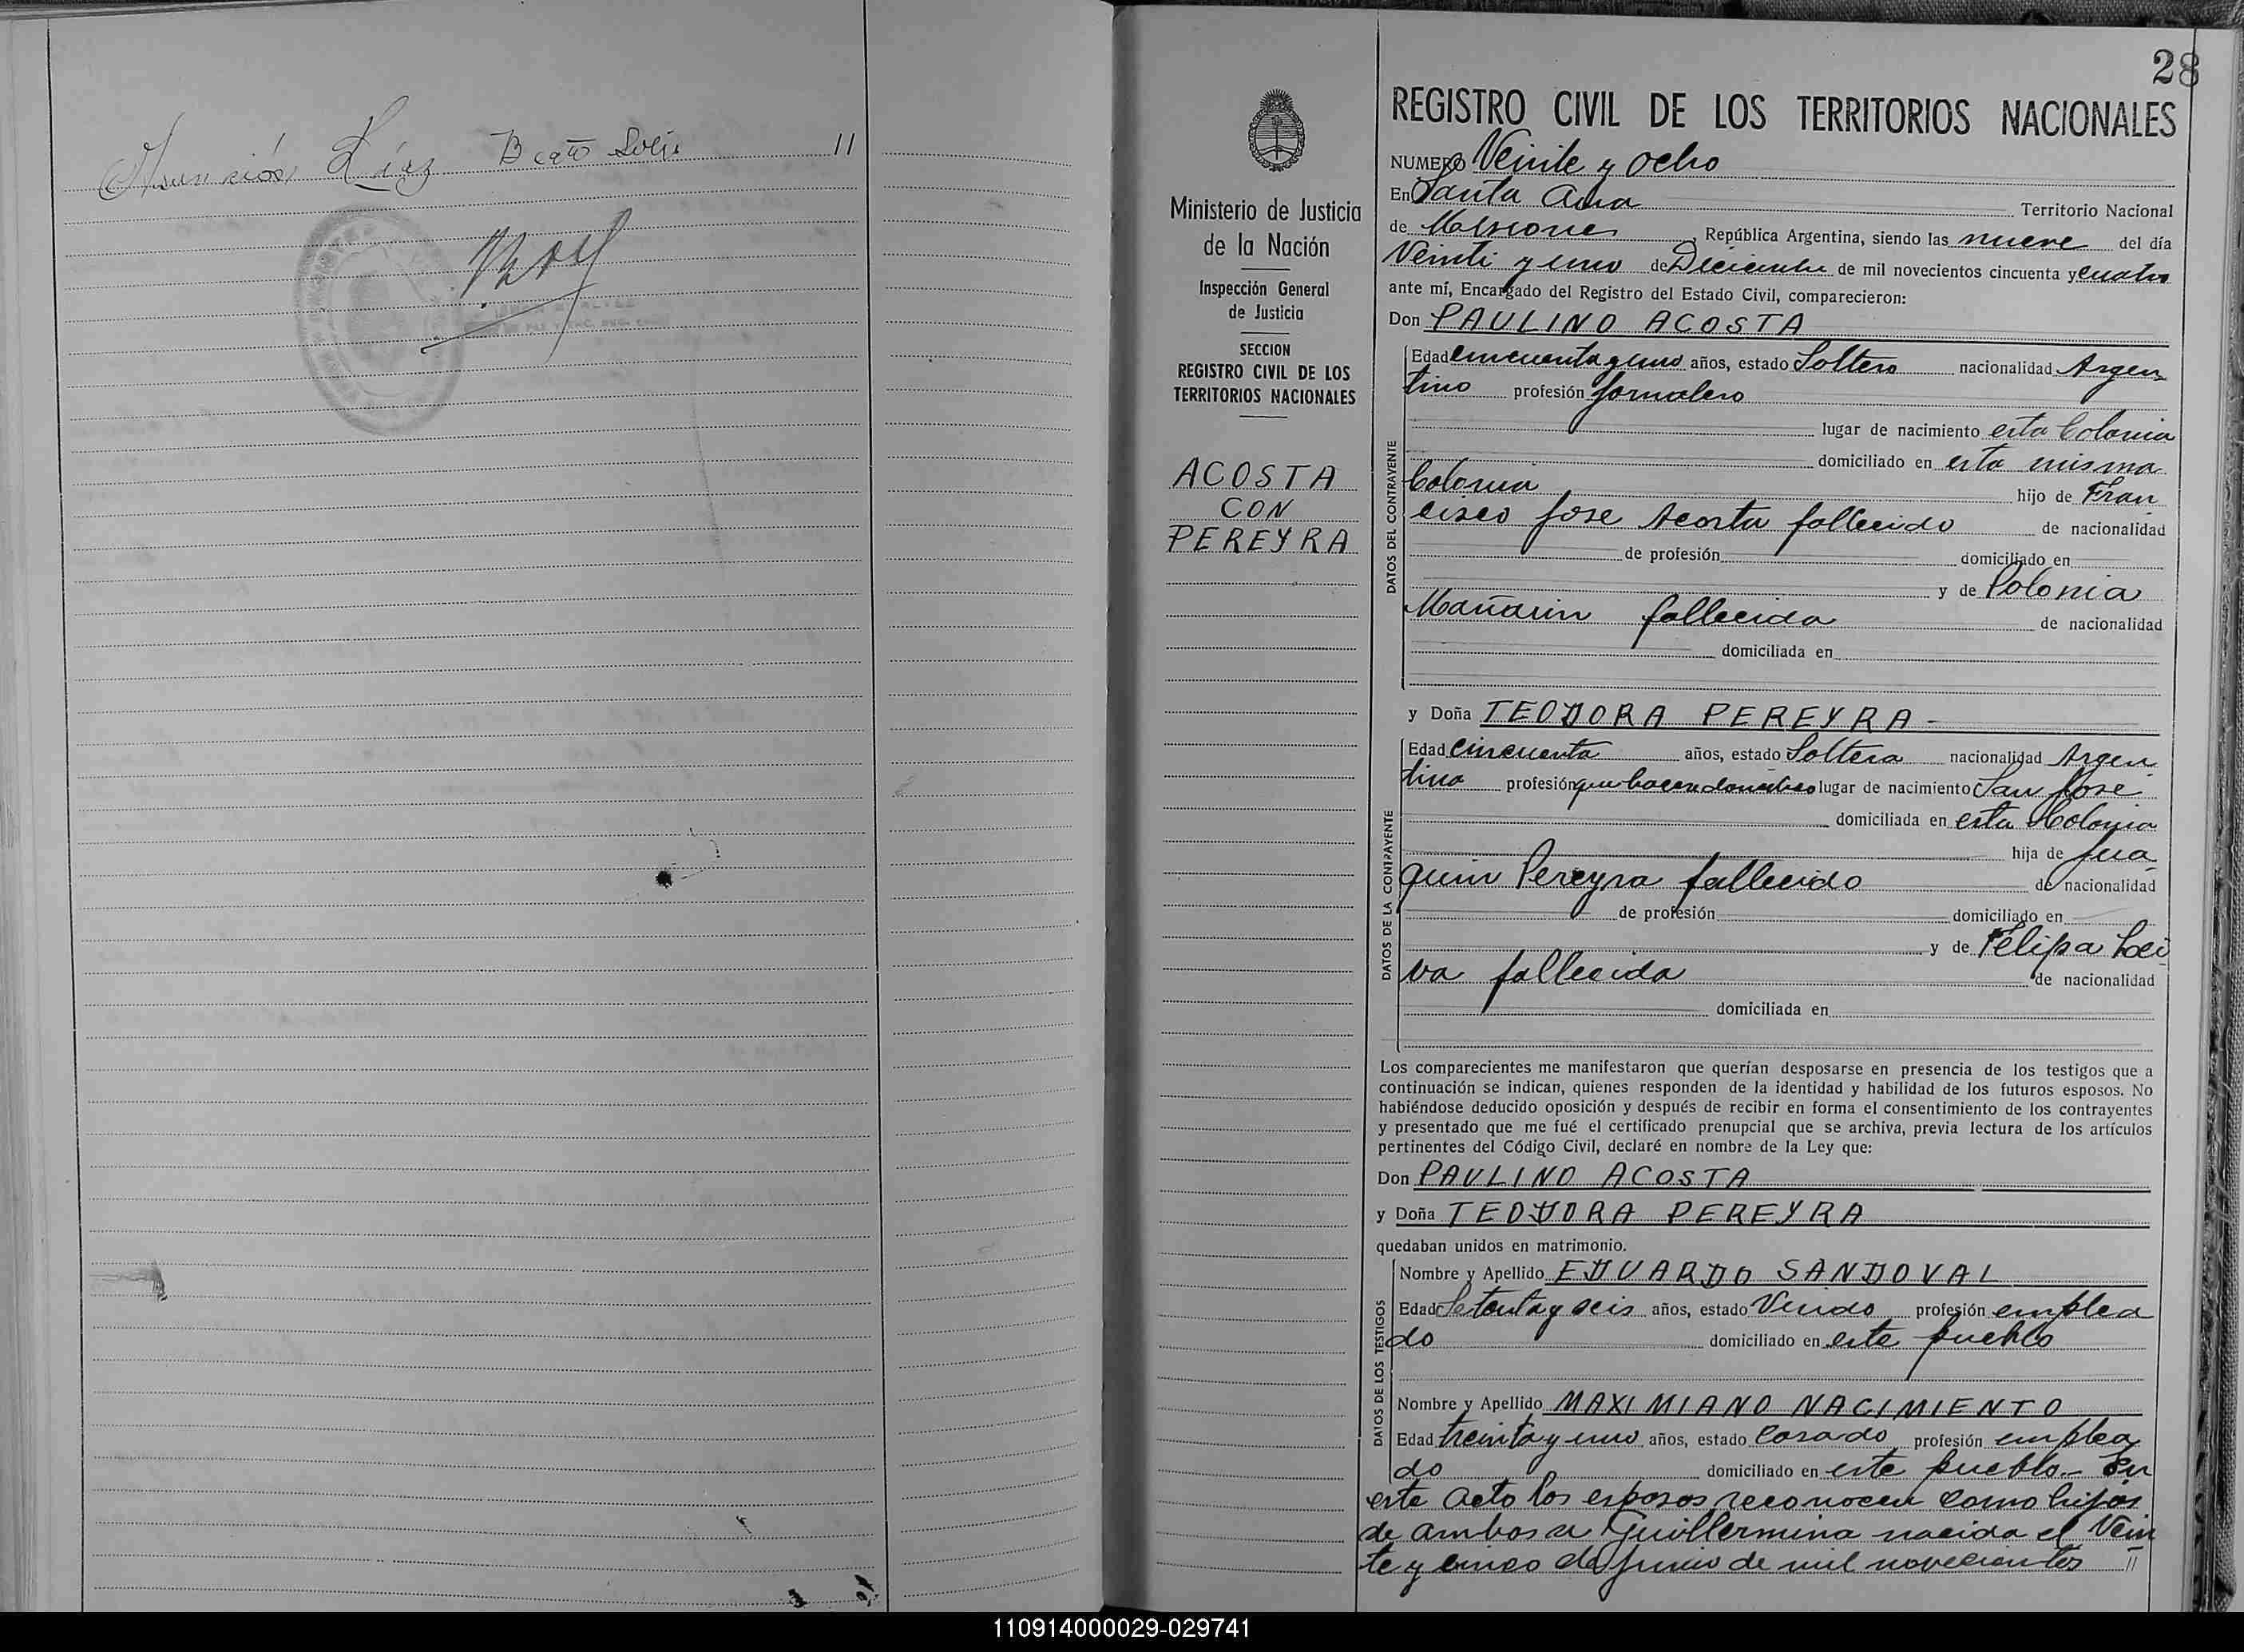 Asunción Díaz
11
28
REGISTRO CIVIL DE LOS TERRITORIOS NACIONALES
Ministerio de Justicia
de la Nación
Inspección General
de Justicia
SECCION
REGISTRO CIVIL DE LOS
TERRITORIOS NACIONALES
ACOSTA
CON
PEREYRA
NUMERO Veinte y ocho
En Santa Ana Territorio Nacional
de Misiones República Argentina, siendo las nueve del día
Veinti y uno de Diciembre de mil novecientos cincuenta y cuatro
ante mí, Encargado del Registro del Estado Civil, comparecieron:
Don PAULINO ACOSTA
DATOS DEL CONTRAYENTE
Edad cincuenta y uno años, estado Soltero nacionalidad Argen
tino profesión jornalero
lugar de nacimiento esta Colonia
domiciliado en esta misma
Colonia hijo de Fran
cisco Jose Acosta fallecido de nacionalidad
de profesión domiciliado en
y de Polonia
Mañarin fallecida de nacionalidad
domiciliada en
y Doña TEODORA PEREYRA -
DATOS DE LA CONTRAYENTE
Edad cincuenta años, estado Soltera nacionalidad Argen
tina profesión lugar de nacimiento San Jose
domiciliada en esta Colonia
hija de Jua
quin Pereyra fallecido de nacionalidad
de profesión domiciliado en
y de Felipa Lei
va fallecida de nacionalidad
domiciliada en
Los comparecientes me manifestaron que querían desposarse en presencia de los testigos que a
continuación se indican, quienes responden de la identidad y habilidad de los futuros esposos. No
habiéndose deducido oposición y después de recibir en forma el consentimiento de los contrayentes
y presentado que me fué el certificado prenupcial que se archiva, previa lectura de los artículos
pertinentes del Código Civil, declaré en nombre de la Ley que:
Don PAULINO ACOSTA
y Doña TEODORA PEREYRA
quedaban unidos en matrimonio.
DATOS DE LOS TESTIGOS
Nombre y Apellido EDUARDO SANDOVAL
Edad Setenta y seis años, estado Viudo profesión emplea
do domiciliado en este pueblo
Nombre y Apellido MAXIMIANO NACIMIENTO
Edad treinta y uno años, estado Casado profesión emplea
do domiciliado en este pueblo.- En
este acto los esposos reconocen como hijos
de ambos a Guillermina nacida el Vein
te y cinco de Junio de mil novecientos //
110914000029-029741